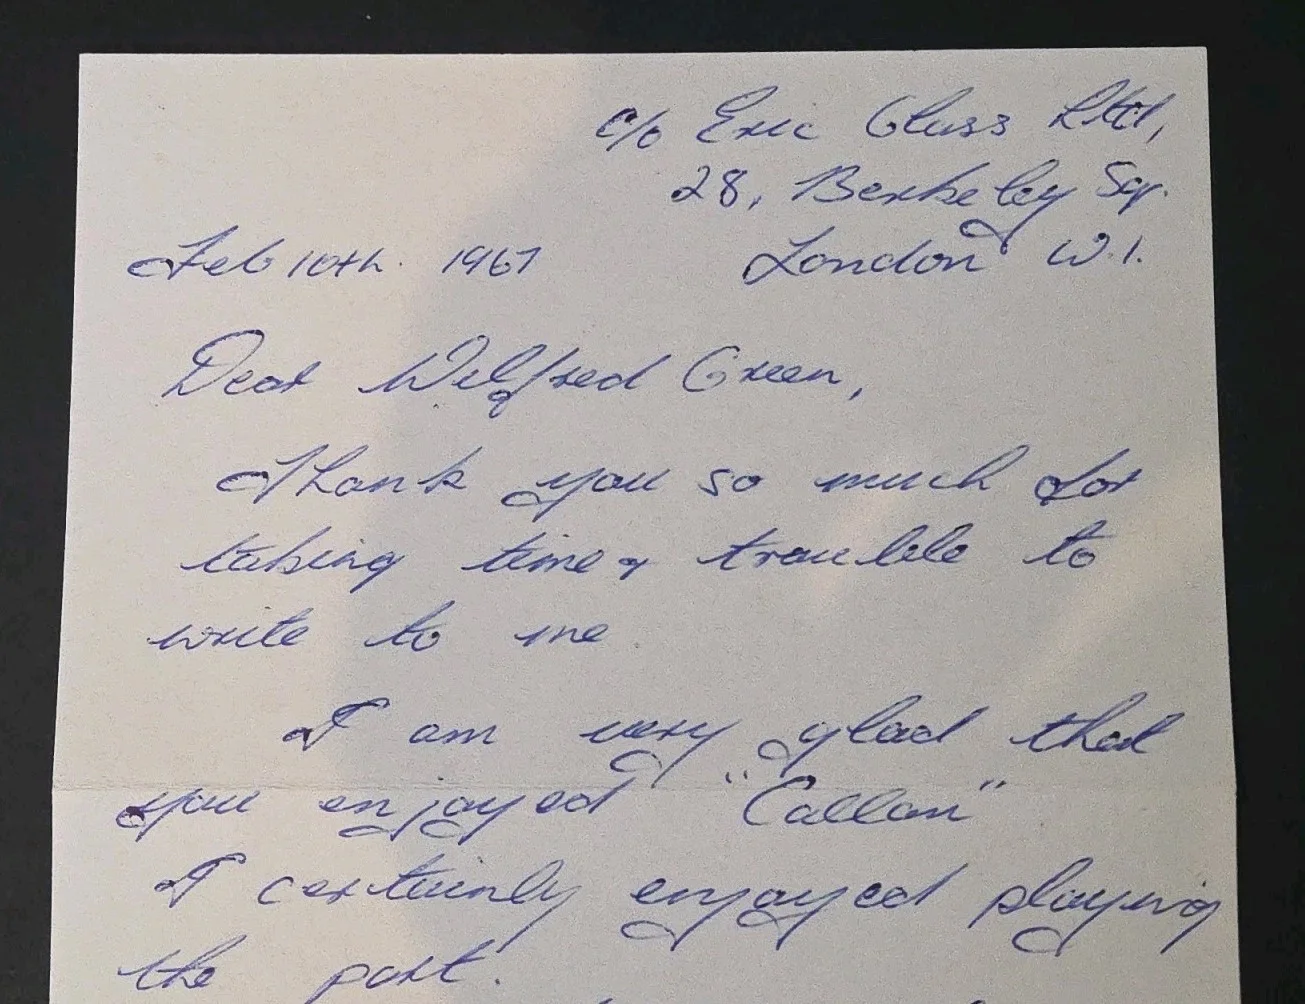 c/o Eric Glass Ltd,
28, Berkeley Sq.
Feb 10th. 1967 London W.1.
Dear Wilfred Green,
Thank you so much for
taking time & trouble to
write to me.
I am very glad that
you enjoyed "Callan"
I certainly enjoyed playing
the part.